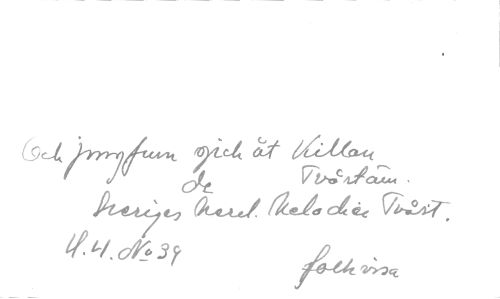 Och jungfrun gick åt Killan
de Tvåstäm.
Sveriges Melodier Tvåst.
H.H. No 39
folkvisa